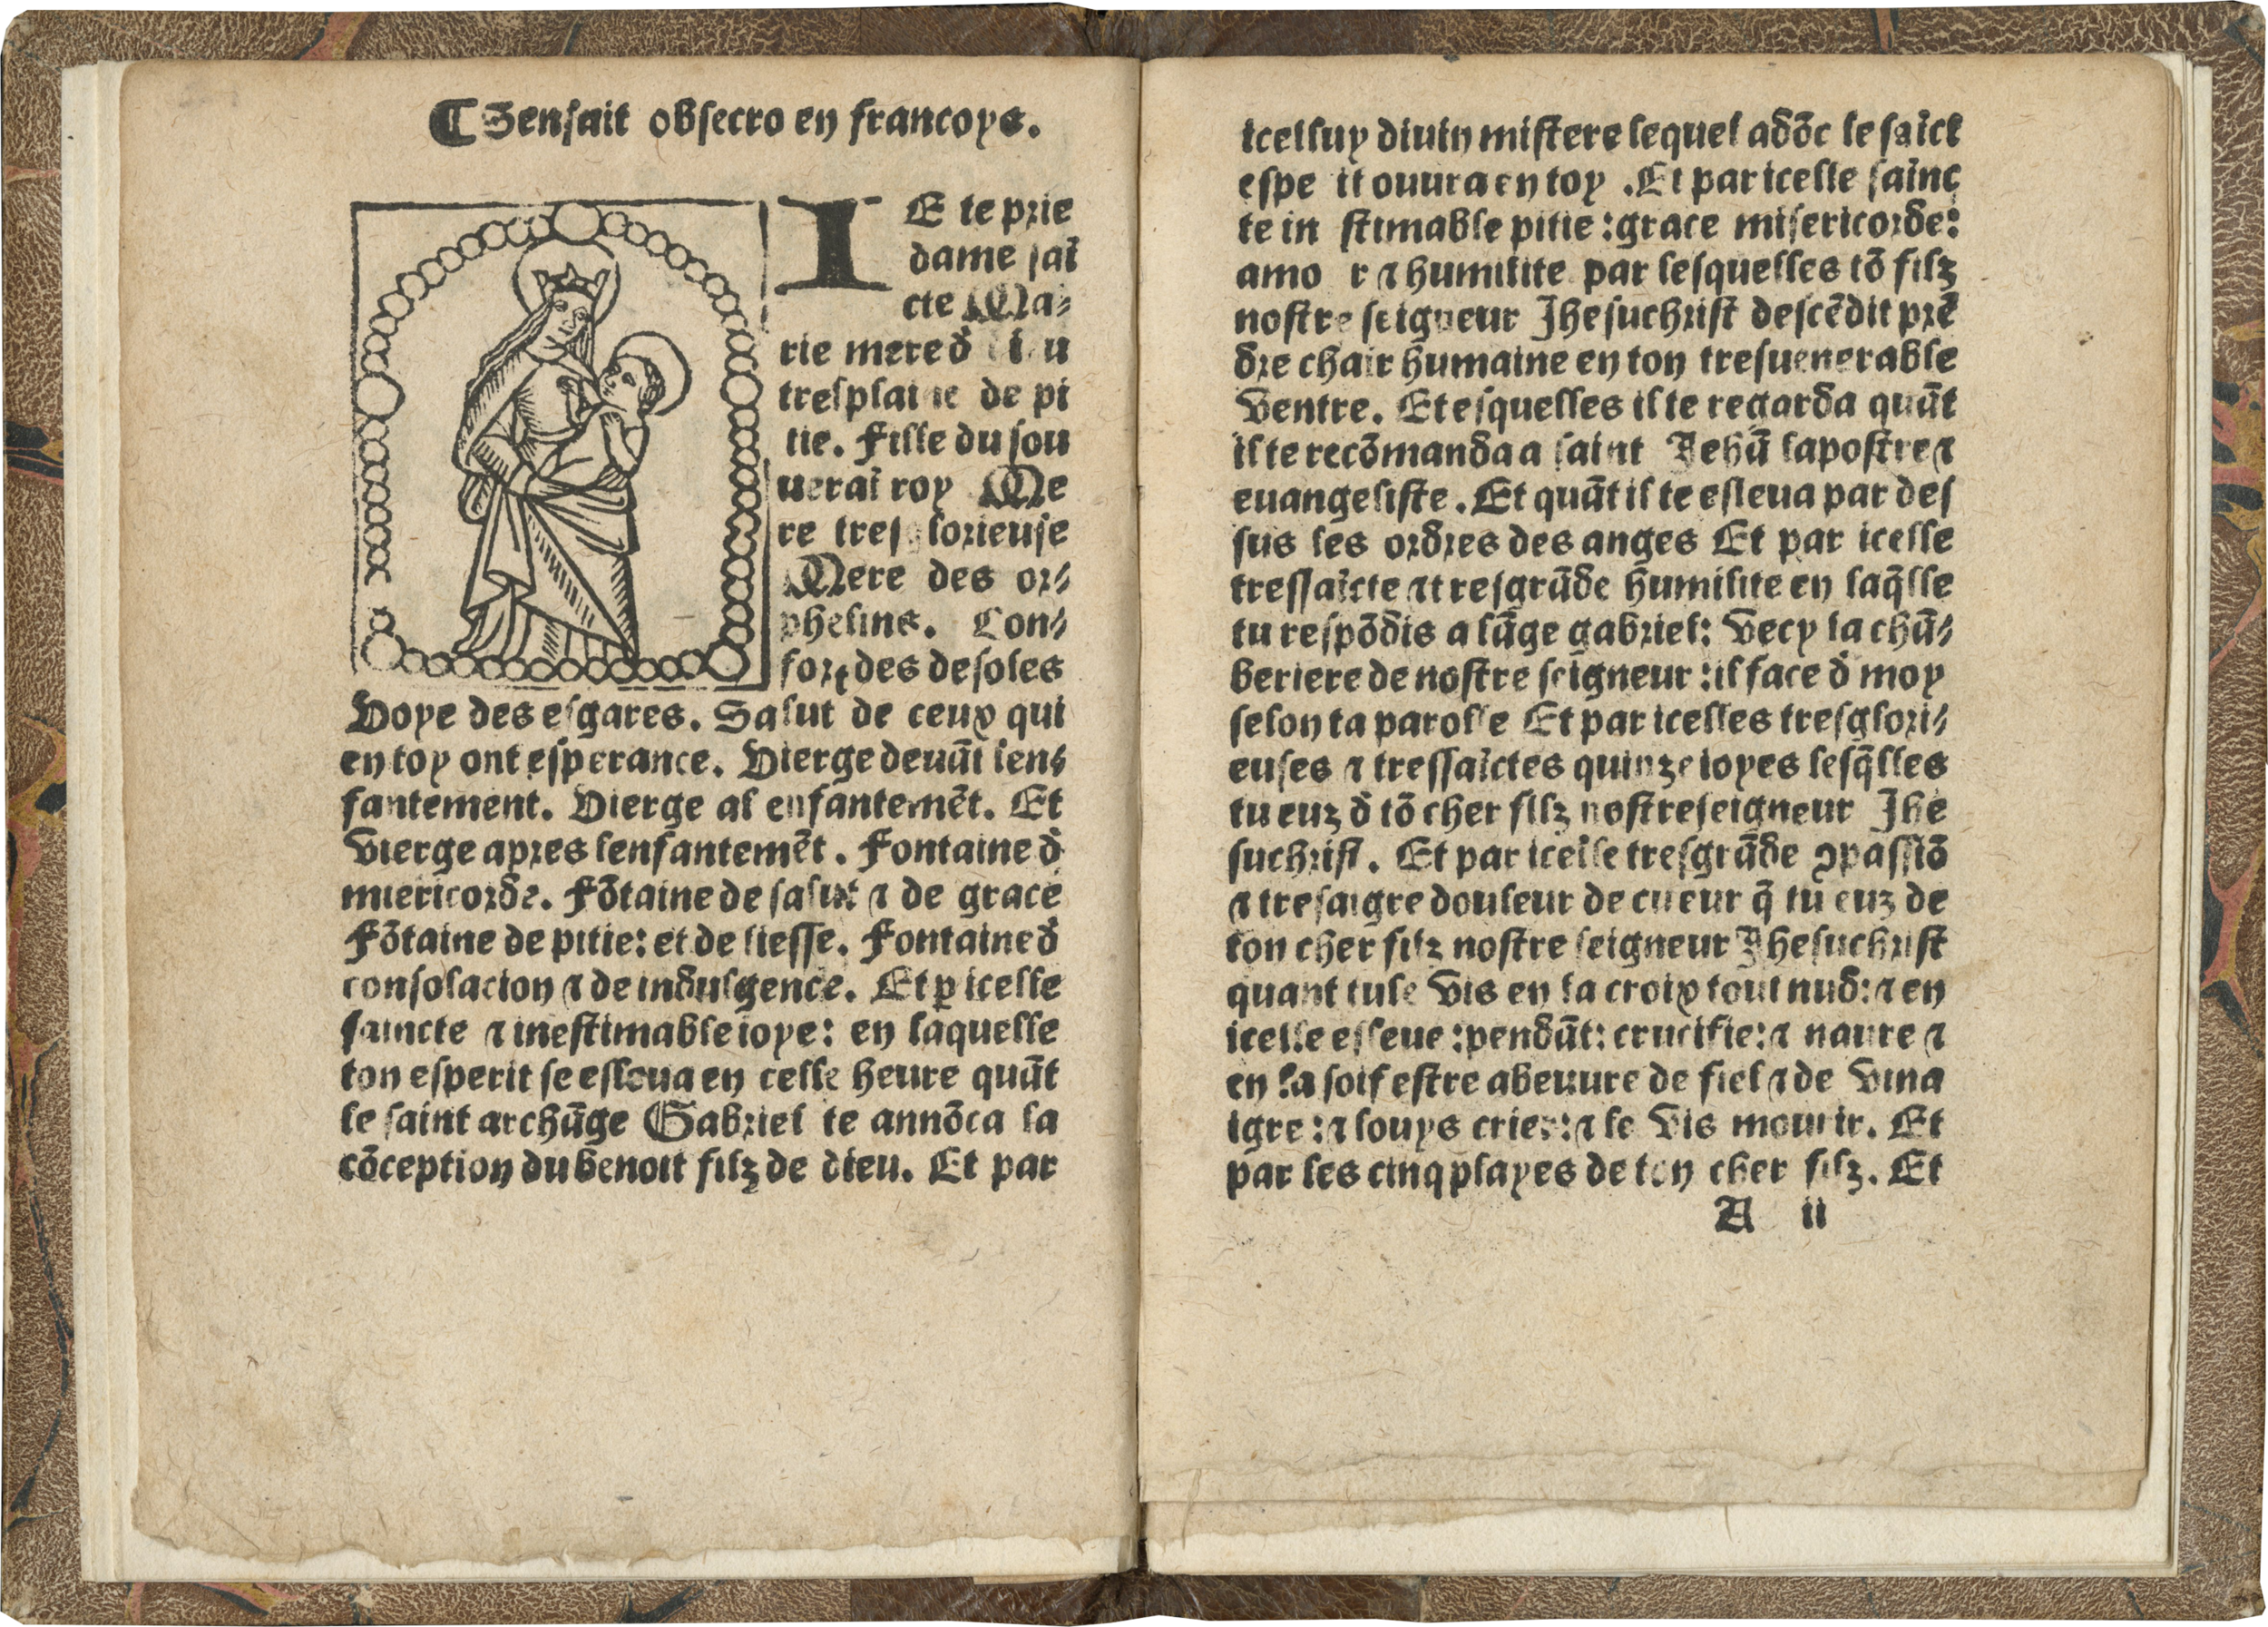 ¶ Sensuit obsecro en francoys.
IE te prie
dame sai᷃
cte Ma⸗
rie mere d̉
tresplaine de pi
tie. Fille du sou
uerai᷃ roy Me
re tresglorieuse
Mere des or⸗
phelins. Con⸗
fort des desoles
Voye des esgares. Salut de ceux qui
en toy ont esperance. Vierge deuãt len⸗
fantement. Vierge al enfantemẽt. Et
vierge apres lenfantemẽt. Fontaine d̉
miericorde. Fõtaine de salut ⁊ de grace
Fõtaine de pitie: et de liesse. Fontaine d̉
consolacion ⁊ de indulgence. Et ꝑ icelle
saincte ⁊ inestimable ioye: en laquelle
ton esperit se esleua en celle heure quãt
le saint archãge Gabriel te annõca la
cõception du benoit filz de dieu. Et par
icelluy diuin mistere lequel adõc le sai᷃ct
espe it ouura en toy. Et par icelle sainc
te in stimable pitie: grace misericorde:
amo r ⁊ humilite par lesquelles tõ filz
nostre seigneur Jhesuchrist descẽdit prẽ
dre chair humaine en ton tresuenerable
ventre. Et esquelles il te regarda quãt
il te recõmanda a saint Jehã lapostre ⁊
euangeliste. Et quãt il te esleua par des
sus les ordres des anges Et par icelle
tressai᷃cte ⁊ tresgrãde humilite en laq̃lle
tu respõdis a lãge gabriel: Vecy la chã⸗
beriere de nostre seigneur: il face d̉ moy
selon ta parolle Et par icelles tresglori⸗
euses ⁊ tressai᷃ctes quinze ioyes lesq̃lles
tu euz d̉ tõ cher filz nostre seigneur Jhe
suchrist. Et par icelle tresgrãde ↄpassiõ
⁊ tresaigre douleur de cueur q̃ tu euz de
ton cher filz nostre seigneur Jhesuchrist
quant tu le vis en la croix tout nud: ⁊ en
icelle esleue: pendãt: crucifie: ⁊ naure ⁊
en la soif estre abeuure de fiel ⁊ de vina
igre: ⁊ louys crier: ⁊ le vis mourir. Et
par les cinq playes de ton cher filz. Et
A ii